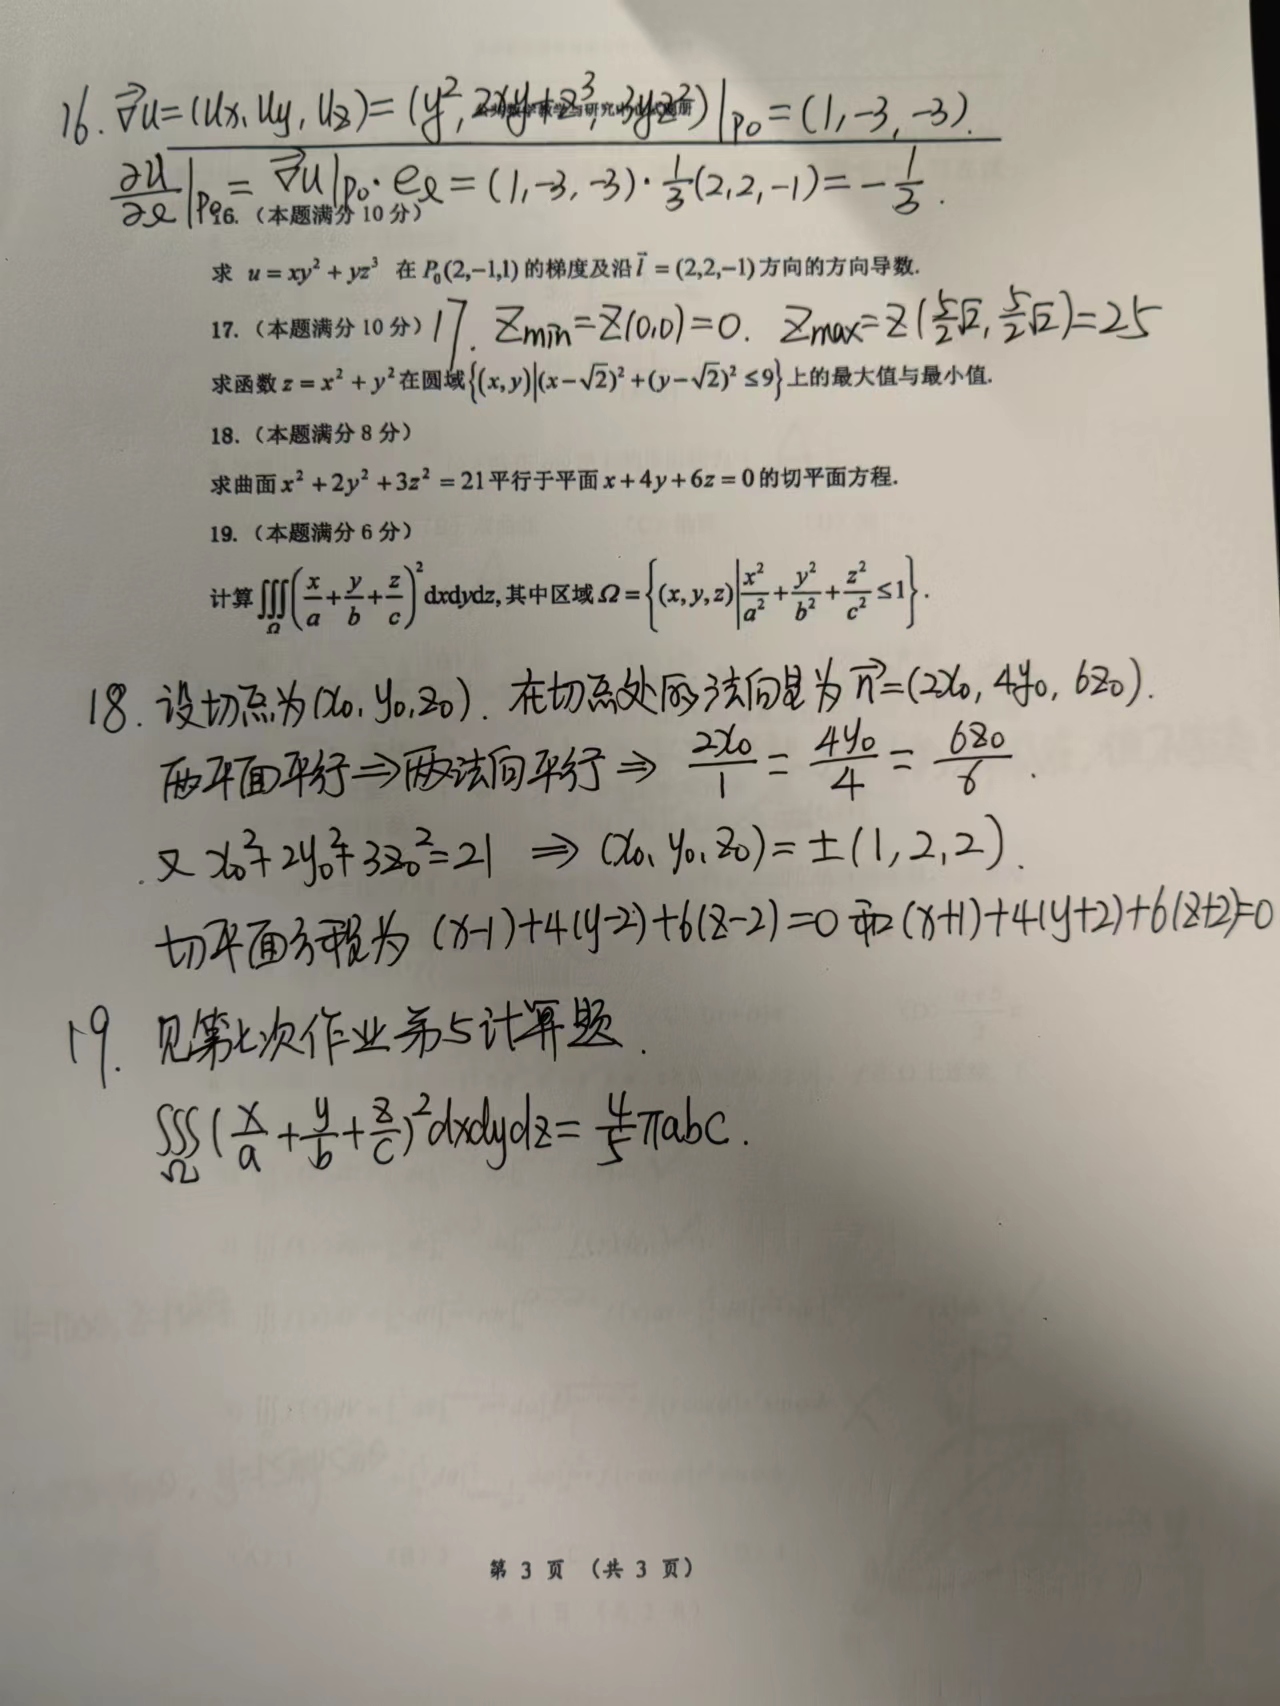 16. ∇⃗u=(ux, uy, uz)=(y², 2xy+z³, 3yz²)|P₀=(1,-3,-3).
∂u/∂l|P₀=∇⃗u|P₀·eₗ=(1,-3,-3)·1/3(2,2,-1)=-1/3.
16.（本题满分 10 分）
求 u=xy²+yz³ 在 P₀(2,-1,1) 的梯度及沿 l⃗=(2,2,-1) 方向的方向导数.
17.（本题满分 10 分）17. Zmin=Z(0,0)=0. Zmax=Z(5/2√2, 5/2√2)=25
求函数 z=x²+y² 在圆域{(x,y)|(x-√2)²+(y-√2)²≤9}上的最大值与最小值.
18.（本题满分 8 分）
求曲面 x²+2y²+3z²=21 平行于平面 x+4y+6z=0 的切平面方程.
19.（本题满分 6 分）
计算∭Ω(x/a+y/b+z/c)²dxdydz, 其中区域 Ω={(x,y,z)|x²/a²+y²/b²+z²/c²≤1}.
18. 设切点为(x₀, y₀, z₀). 在切点处的法向量为 n⃗=(2x₀, 4y₀, 6z₀).
两平面平行⇒两法向平行⇒ 2x₀/1=4y₀/4=6z₀/6.
又 x₀²+2y₀²+3z₀²=21 ⇒ (x₀, y₀, z₀)=±(1,2,2).
切平面方程为 (x-1)+4(y-2)+6(z-2)=0 和 (x+1)+4(y+2)+6(z+2)=0
19. 见第七次作业第5计算题.
∭Ω(x/a+y/b+z/c)²dxdydz=4/5πabc.
第 3 页 （共 3 页）